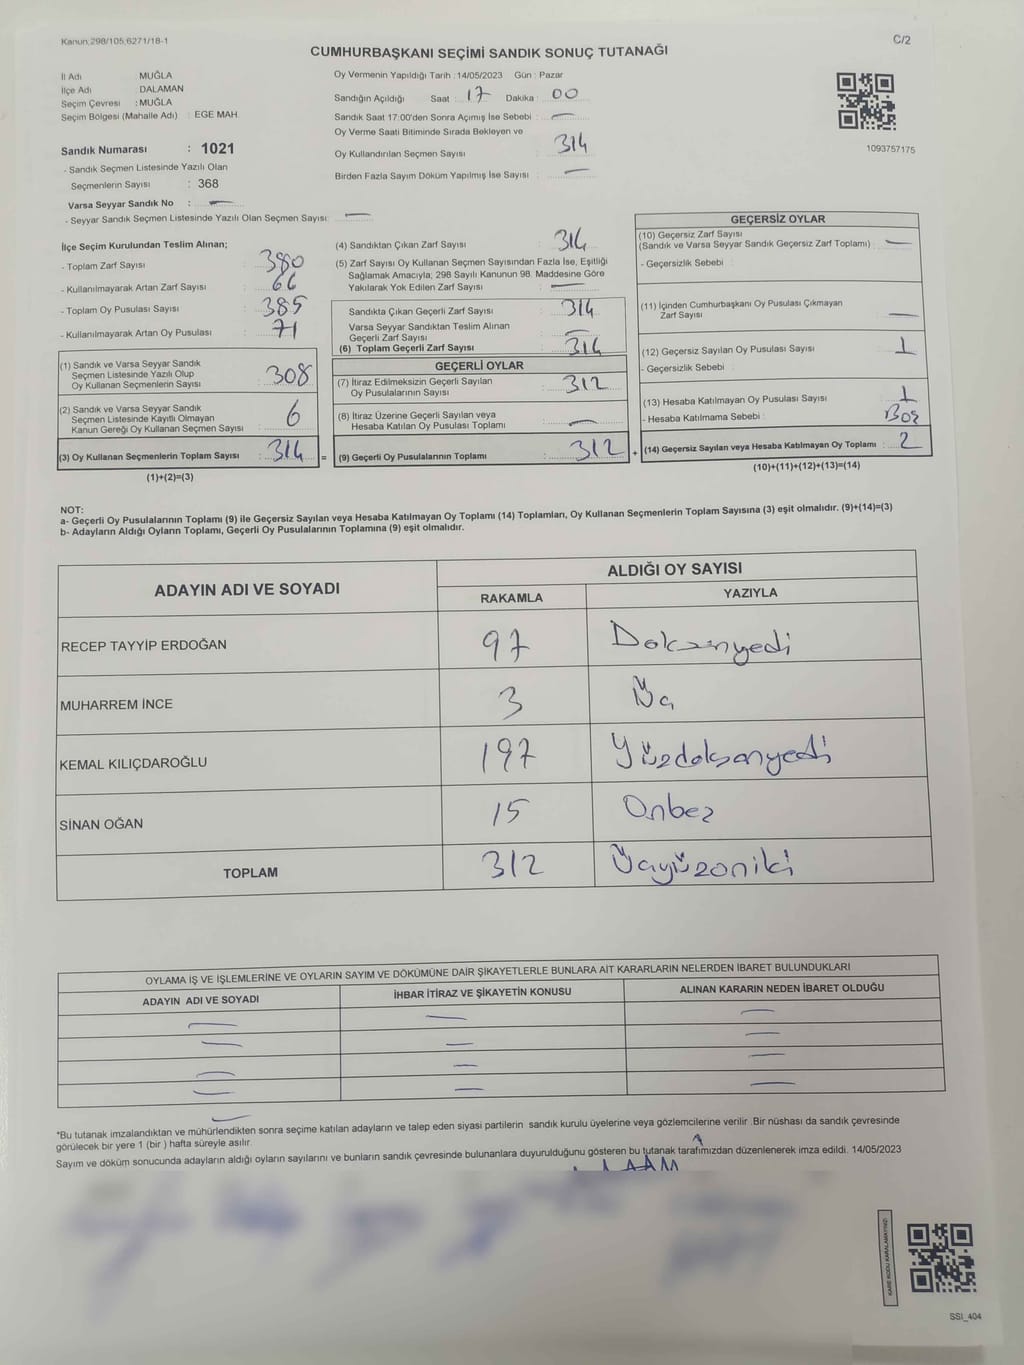 Kanun;298/105,6271/18-1
C/2
CUMHURBAŞKANI SEÇİMİ SANDIK SONUÇ TUTANAĞI
İl Adı : MUĞLA
İlçe Adı : DALAMAN
Seçim Çevresi : MUĞLA
Seçim Bölgesi (Mahalle Adı) : EGE MAH.
Sandık Numarası : 1021
- Sandık Seçmen Listesinde Yazılı Olan
Seçmenlerin Sayısı : 368
Varsa Seyyar Sandık No : —
- Seyyar Sandık Seçmen Listesinde Yazılı Olan Seçmen Sayısı: —
Oy Vermenin Yapıldığı Tarih : 14/05/2023 Gün : Pazar
Sandığın Açıldığı Saat : 17 Dakika : 00
Sandık Saat 17:00'den Sonra Açımış İse Sebebi : —
Oy Verme Saati Bitiminde Sırada Bekleyen ve
Oy Kullandırılan Seçmen Sayısı : 314
Birden Fazla Sayım Döküm Yapılmış İse Sayısı : —
1093757175
İlçe Seçim Kurulundan Teslim Alınan;
- Toplam Zarf Sayısı : 380
- Kullanılmayarak Artan Zarf Sayısı : 66
- Toplam Oy Pusulası Sayısı : 385
- Kullanılmayarak Artan Oy Pusulası : 71
(1) Sandık ve Varsa Seyyar Sandık
Seçmen Listesinde Yazılı Olup
Oy Kullanan Seçmenlerin Sayısı : 308
(2) Sandık ve Varsa Seyyar Sandık
Seçmen Listesinde Kayıtlı Olmayan
Kanun Gereği Oy Kullanan Seçmen Sayısı : 6
(3) Oy Kullanan Seçmenlerin Toplam Sayısı : 314 =
(1)+(2)=(3)
(4) Sandıktan Çıkan Zarf Sayısı : 314
(5) Zarf Sayısı Oy Kullanan Seçmen Sayısından Fazla İse, Eşitliği
Sağlamak Amacıyla; 298 Sayılı Kanunun 98. Maddesine Göre
Yakılarak Yok Edilen Zarf Sayısı : —
Sandıkta Çıkan Geçerli Zarf Sayısı : 314
Varsa Seyyar Sandıktan Teslim Alınan
Geçerli Zarf Sayısı : —
(6) Toplam Geçerli Zarf Sayısı : 314
GEÇERLİ OYLAR
(7) İtiraz Edilmeksizin Geçerli Sayılan
Oy Pusulalarının Sayısı : 312
(8) İtiraz Üzerine Geçerli Sayılan veya
Hesaba Katılan Oy Pusulası Toplamı : —
(9) Geçerli Oy Pusulalarının Toplamı : 312 +
GEÇERSİZ OYLAR
(10) Geçersiz Zarf Sayısı
(Sandık ve Varsa Seyyar Sandık Geçersiz Zarf Toplamı) : —
- Geçersizlik Sebebi :
(11) İçinden Cumhurbaşkanı Oy Pusulası Çıkmayan
Zarf Sayısı : —
(12) Geçersiz Sayılan Oy Pusulası Sayısı : 1
- Geçersizlik Sebebi :
(13) Hesaba Katılmayan Oy Pusulası Sayısı : 1
- Hesaba Katılmama Sebebi : Boş
(14) Geçersiz Sayılan veya Hesaba Katılmayan Oy Toplamı : 2
(10)+(11)+(12)+(13)=(14)
NOT:
a- Geçerli Oy Pusulalarının Toplamı (9) ile Geçersiz Sayılan veya Hesaba Katılmayan Oy Toplamı (14) Toplamları, Oy Kullanan Seçmenlerin Toplam Sayısına (3) eşit olmalıdır. (9)+(14)=(3)
b- Adayların Aldığı Oyların Toplamı, Geçerli Oy Pusulalarının Toplamına (9) eşit olmalıdır.
ADAYIN ADI VE SOYADI ALDIĞI OY SAYISI
RAKAMLA YAZIYLA
RECEP TAYYİP ERDOĞAN 97 Doksanyedi
MUHARREM İNCE 3 Üç
KEMAL KILIÇDAROĞLU 197 Yüzdoksanyedi
SİNAN OĞAN 15 Onbeş
TOPLAM 312 Üçyüzoniki
OYLAMA İŞ VE İŞLEMLERİNE VE OYLARIN SAYIM VE DÖKÜMÜNE DAİR ŞİKAYETLERLE BUNLARA AİT KARARLARIN NELERDEN İBARET BULUNDUKLARI
ADAYIN ADI VE SOYADI İHBAR İTİRAZ VE ŞİKAYETİN KONUSU ALINAN KARARIN NEDEN İBARET OLDUĞU
— — —
— — —
— — —
— — —
*Bu tutanak imzalandıktan ve mühürlendikten sonra seçime katılan adayların ve talep eden siyasi partilerin sandık kurulu üyelerine veya gözlemcilerine verilir. Bir nüshası da sandık çevresinde
görülecek bir yere 1 (bir ) hafta süreyle asılır.
Sayım ve döküm sonucunda adayların aldığı oyların sayılarını ve bunların sandık çevresinde bulunanlara duyurulduğunu gösteren bu tutanak tarafımızdan düzenlenerek imza edildi. 14/05/2023
KARE KODU KARALAMAYINIZ!
SSI_404